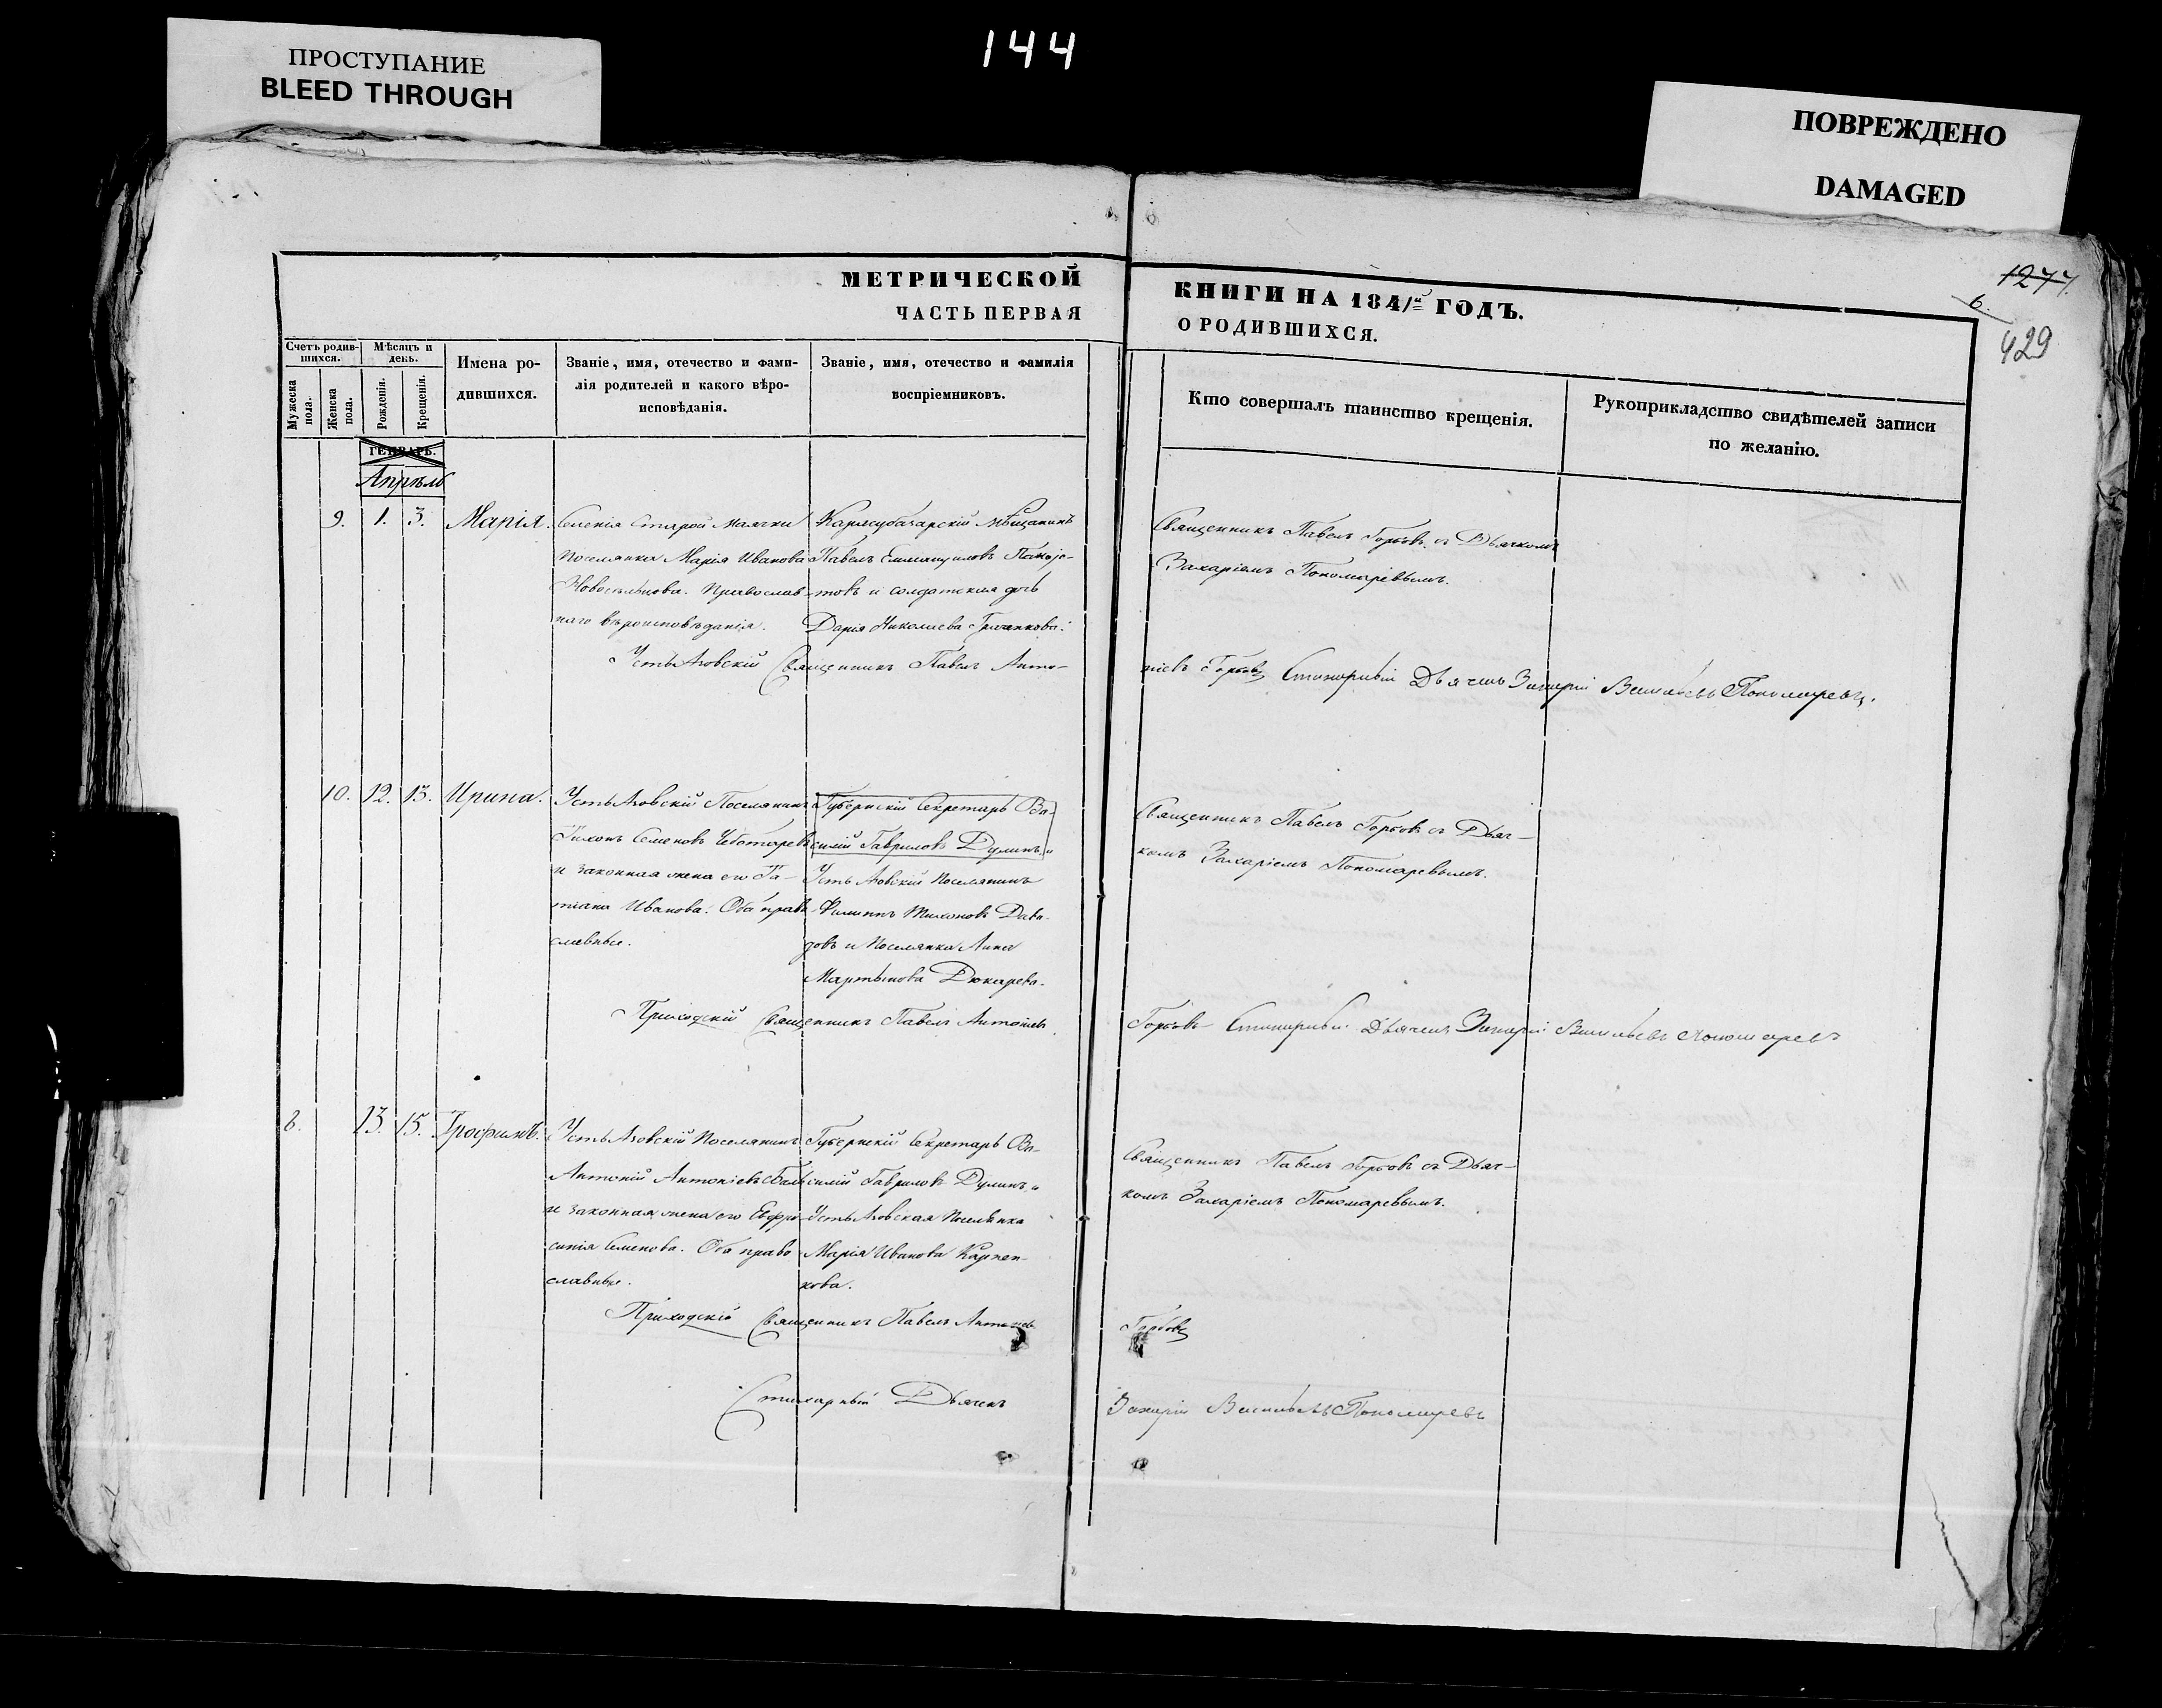 144
ПРОСТУПАНИЕ
BLEED THROUGH
ПОВРЕЖДЕНО
DAMAGED
1277.
6.
429
МЕТРИЧЕСКОЙ
ЧАСТЬ ПЕРВАЯ
КНИГИ НА 1841й ГОДЪ.
О РОДИВШИХСЯ.
Счетъ родив-
шихся.
Мужеска
пола.
Женска
пола.
Мѣсяцъ и
день.
Рожденія.
Крещенія.
Имена ро-
дившихся.
Званіе, имя, отечество и фами-
лія родителей и какого вѣро-
исповѣданія.
Званіе, имя, отечество и фамилія
воспріемниковъ.
Кто совершалъ таинство крещенія.
Рукоприкладство свидѣтелей записи
по желанію.
ГЕНВАРЬ.
Апрѣль
9.
1.
3.
Марія.
Селенія Старой Маячки
Поселянка Марія Иванова
Новосельцова. Православ-
наго вѣроисповѣданія.
Карасубазарскій Мѣщанинъ
Павелъ Еммануиловъ
товъ и солдатская дочь
Дарія Николаева
Священникъ Павелъ Горбовъ съ Дьячкомъ
Захаріемъ Пономаревымъ.
Усть Азовскій Священникъ Павелъ Анто-
ніевъ Горбовъ Стихарный Дьячекъ Захарій Васильевъ Пономаревъ.
10.
12.
13.
Ирина.
Усть Азовскій Поселянинъ
Тихонъ Семеновъ Чеботаревъ
и законная жена его Та-
тіана Иванова. Оба право
славные.
Губернскій Секретарь Ва-
силій Гавриловъ Дулинъ, и
Усть Азовскій Поселянинъ
Филиппъ Тихоновъ Давы-
довъ и Поселянка Анна
Мартынова Дюкарева.
Священникъ Павелъ Горбовъ съ Дьяч-
комъ Захаріемъ Пономаревымъ.
Приходскій Священникъ Павелъ Антоніевъ
Горбовъ Стихарный Дьячекъ Захарій Васильевъ Пономаревъ
8.
13.
15.
Трофимъ.
Усть Азовскій Поселянинъ
Антоній Антоніевъ
и законная жена его Евфро-
синія Семенова. Оба право
славные.
Губернскій Секретарь Ва-
силій Гавриловъ Дулинъ, и
Усть Азовская Поселянка
Марія Иванова Карпен-
кова.
Священникъ Павелъ Горбовъ съ Дьяч-
комъ Захаріемъ Пономаревымъ.
Приходскій Священникъ Павелъ Антоніевъ
Горбовъ
Стихарный Дьячекъ
Захарій Васильевъ Пономаревъ